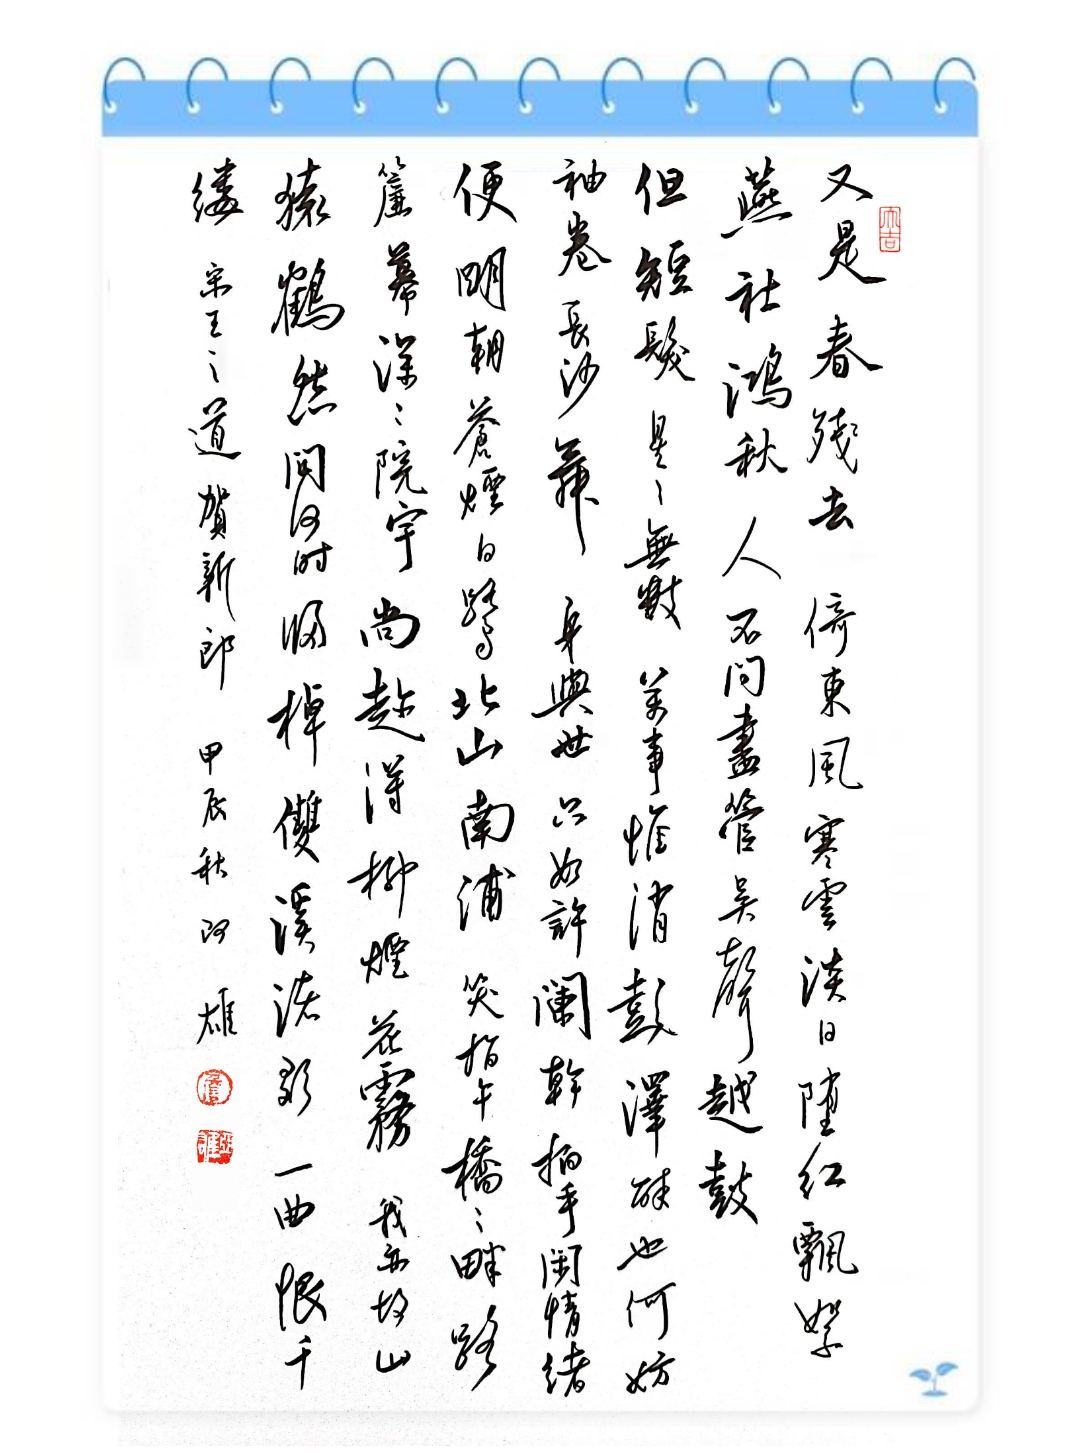 又是春殘去 倚東風寒雲淡日墮紅飄絮
燕社鴻秋 人不問盡管吳聲越鼓
但短髮星〻無數 萬事惟消彭澤醉也何妨
袖卷長沙舞 身與世只如許闌幹拍手閑情緒
便明朝蒼煙白鷺北山南浦 笑指午橋〻畔路
簾幕深〻院宇 尚趁得柳煙花霧 我亦故山
猿鶴怨問何時歸棹雙溪渚歌一曲恨千
縷 宋王之道賀新郎 甲辰秋 阿雄
大吉